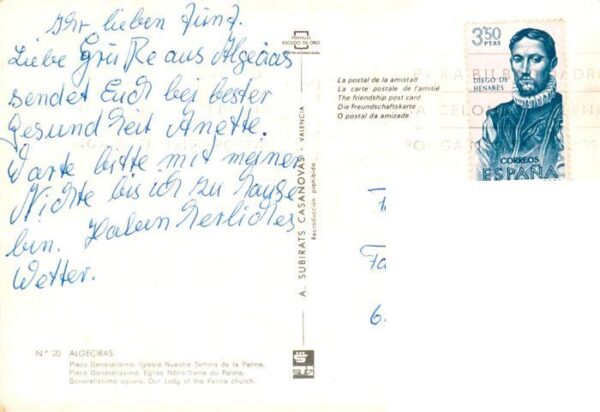 Ihr lieben Fünf.
Liebe Grüße aus Algecias
sendet Euch bei bester
Gesundheit Anette.
Warte bitte mit meiner
Nichte bis ich zu Hause
bin. Haben herliches
Wetter.
Nº 20 ALGECIRAS
Plaza Generalísimo, Iglesia Nuestra Señora de la Palma.
Place Generalissime, Eglise Nôtre-Dame du Palma.
Generalissimo square, Our Lady of the Palma church.
POSTALES
ESCUDO DE ORO
A. SUBIRATS CASANOVAS - VALENCIA
Reproducción prohibida
La postal de la amistad
La carte postale de l'amitié
The friendship post card
Die Freundschaftskarte
O postal da amizade
3,50
PTAS
DIEGO DE
HENARES
CORREOS
ESPAÑA
Fa
6.